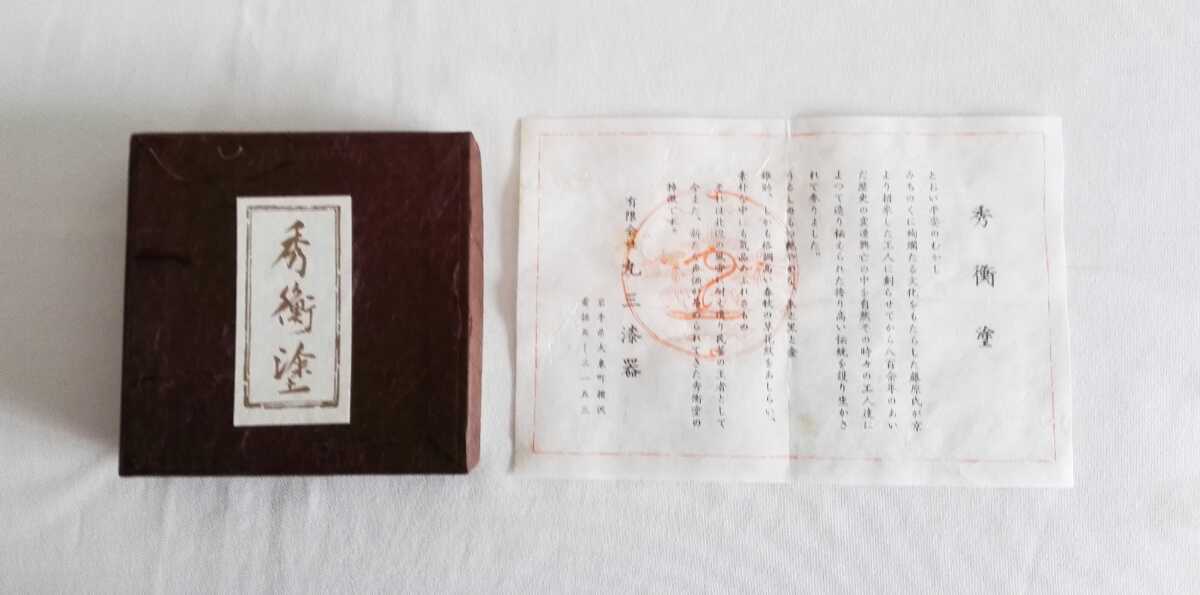 秀衡塗
秀衡塗
とおい平安のむかし
みちのくに絢爛たる文化をもたらした藤原氏が京
より招来した工人に創らせてから八百余年のあい
だ歴史の変遷興亡の中を自然その時々の工人達に
よって造り伝えられた誇り高い伝統を護り生かさ
れて参りました。
朱と黒と金
しかも格調高い春秋の草花紋をあしらい、
素朴の中にも気品あふれるもの
それは北辺の風雪に耐えた民芸の王者として
今また、新たな真価が認められてきた秀衡塗の
特徴です。
有限会社丸三漆器
岩手県大東町摺沢
電話